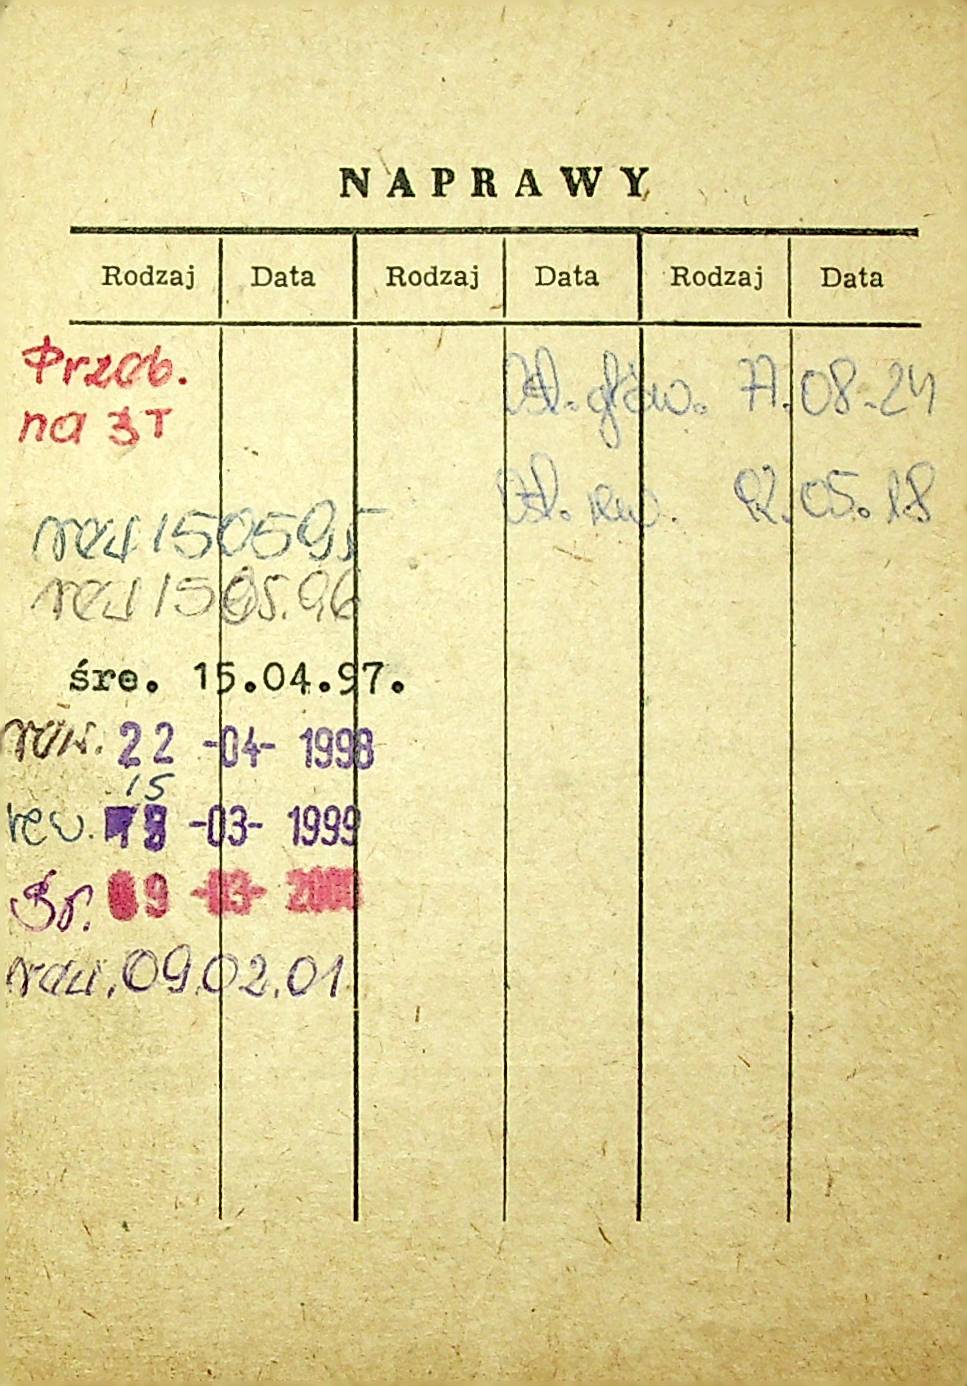 NAPRAWY
Rodzaj Data Rodzaj Data Rodzaj Data
Przeb.
na 3T
Ost. głów. 77.08-24
Ost. rew. 92.05.18
rew 150595
rew 1505.96
śre. 15.04.97.
rew. 22 -04- 1998
15
rew. -03- 1999
Śr. 09 -03- 2000
rew. 09.02.01